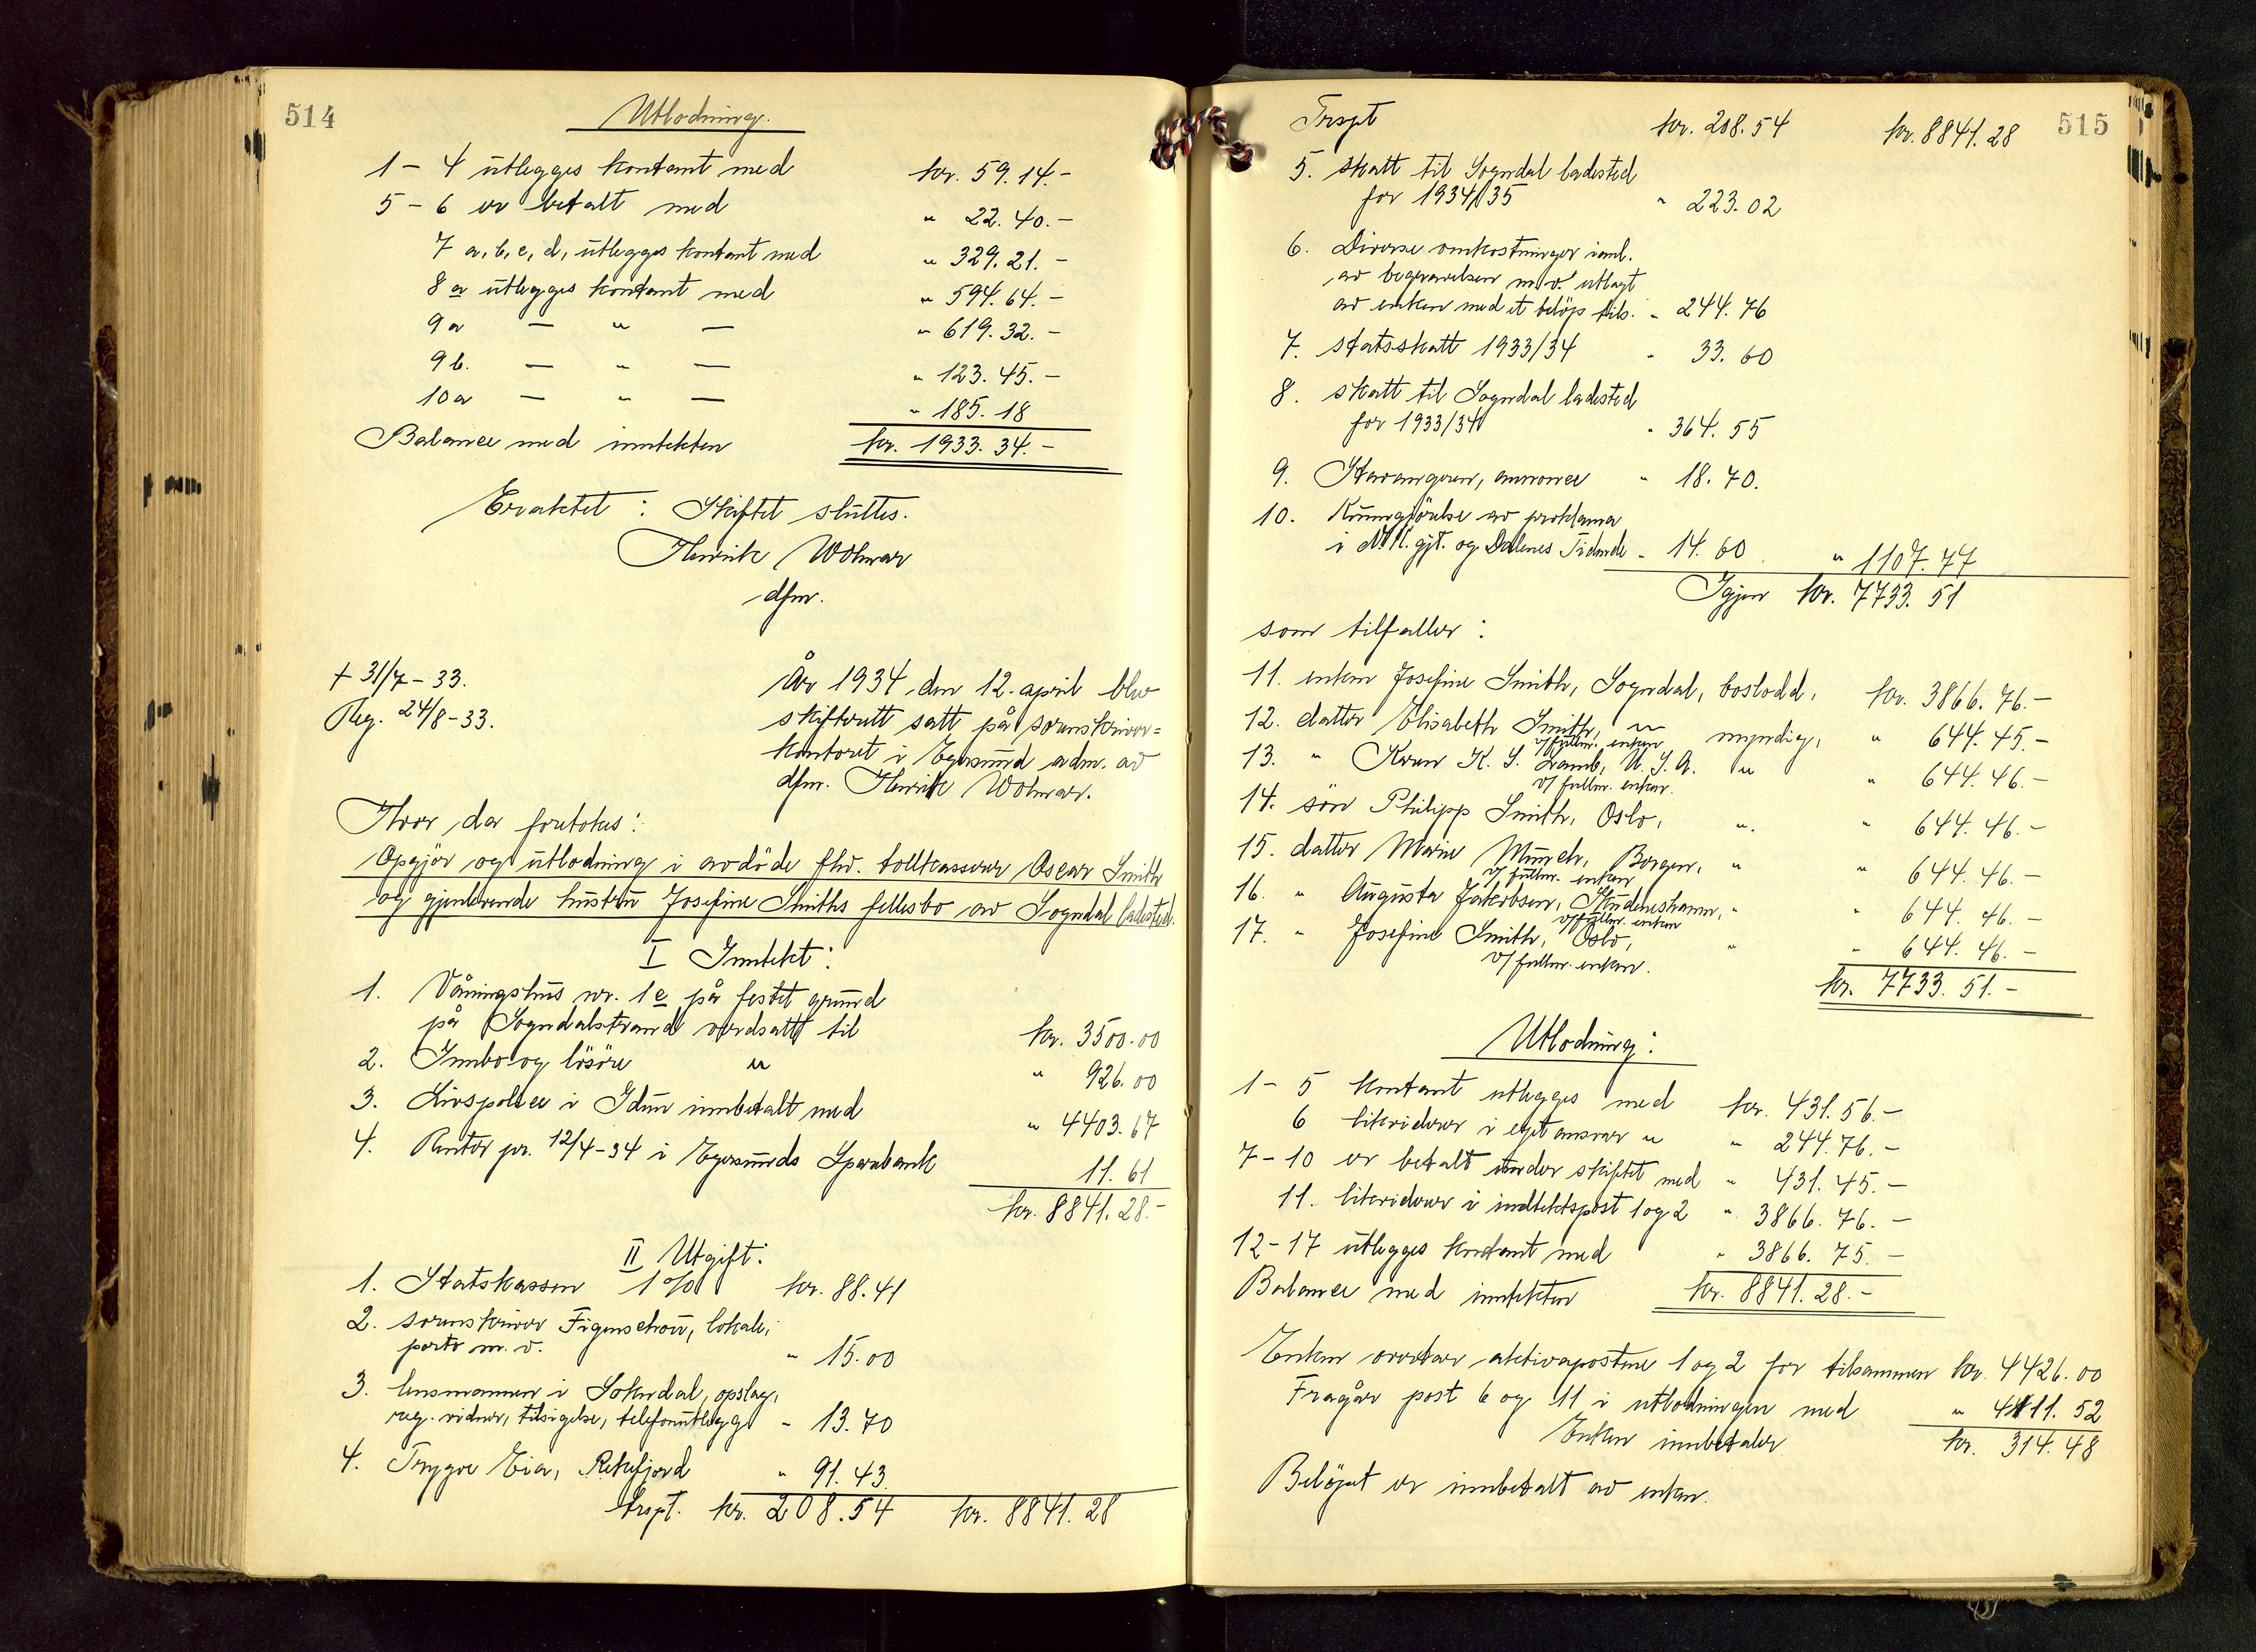 514
Utlodning.
1 - 4 utlegges kontant med kr. 59.14.-
5 - 6 er betalt med " 22.40.-
7 a, b, c, d, utlegges kontant med " 329.21.-
8 a utlegges kontant med " 594.64.-
9a — " — " 619.32.-
9b. — " — " 123.45.-
10a — " — " 185.18
Balance med inntekten kr. 1933.34.-
Eraktet: Skiftet sluttes.
Henrik Wolmar
dfm.
† 31/7-33.
Reg. 24/8-33.
År 1934 den 12. april blev
skifterett satt på sorenskriver=
kontoret i Egersund adm. av
dfm. Henrik Wolmar.
Hvor da foretokes:
Opgjör og utlodning i avdöde fhv. tollkasserer Oscar Smith
og gjenlevende hustru Josefine Smiths fellesbo av Sogndal ladested.
I Inntekt:
1. Våningshus nr. 1e på festet grund
på Sogndalstrand verdsatt til kr. 3500.00
2. Innbo og lösöre " " 926.00
3. Livspolice i Idun innbetalt med " 4403.67
4. Renter pr. 12/4-34 i Egersunds Sparebank 11.61
kr. 8841.28.-
II Utgift:
1. Statskassen 1% kr. 88.41
2. sorenskriver Figenschou, lokale,
porto m.v. " 15.00
3. lensmannen i Sokndal, opslag,
reg. vidner, tilsigelse, telefonutlegg " 13.70
4. Trygve Eia, Rekefjord " 91.43
trspt. kr. 208.54 kr. 8841.28
515
Trspt kr. 208.54 kr. 8841.28
5. skatt til Sogndal ladested
for 1934/35 " 223.02
6. Diverse omkostninger innl.
av begravelsen m.v. utlagt
av enken med et belöp tils. " 244.76
7. statsskatt 1933/34 " 33.60
8. skatt til Sogndal ladested
for 1933/34 " 364.55
9. Stavangeren, annonce " 18.70.
10. Kunngjörelse av proklama
i N.K.gjt. og Dalenes Tidende " 14.60 " 1107.77
Igjen kr. 7733.51
som tilfaller:
11. enken Josefine Smith, Sogndal, boslodd, kr. 3866.76.-
12. datter Elisabeth Smith, " myndig, " 644.45.-
v/ fullm. enken
13. " Karen K. S. Lamb, U.S.A. " " 644.46.-
v/ fullm. enken.
14. sön Philipp Smith, Oslo, " " 644.46.-
15. datter Marie Münch, Bergen, " " 644.46.-
v/ fullm. enken
16. " Augusta Jakobsen, Skudeneshavn, " " 644.46.-
v/ fullm. enken
17. " Josefine Smith, Oslo, " " 644.46.-
v/ fullm. enken.
kr. 7733.51.-
Utlodning:
1 - 5 kontant utlegges med kr. 431.56.-
6 likviderer i eget ansvar " " 244.76.-
7-10 er betalt under skiftet med " 431.45.-
11. likviderer i inntektspost 1 og 2 " 3866.76.-
12-17 utlegges kontant med " 3866.75.-
Balance med inntekten kr. 8841.28.-
Enken overtar aktivapostene 1 og 2 for tilsammen kr. 4426.00
Fragår post 6 og 11 i utlodningen med " 4111.52
Enken innbetaler kr. 314.48
Belöpet er innbetalt av enken.